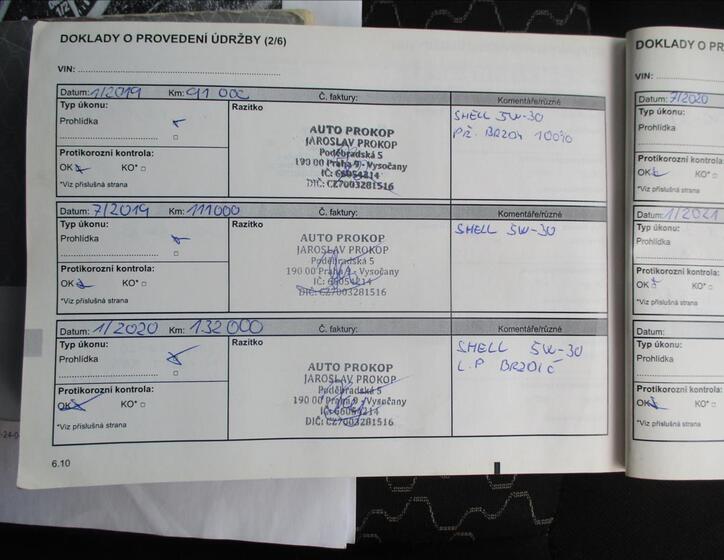 DOKLADY O PROVEDENÍ ÚDRŽBY (2/6)
VIN:
Datum: 1/2019 Km: 91 000 Č. faktury: Komentáře/různé
Typ úkonu: Razítko
Prohlídka
SHELL 5W-30
PŘ. BRZDY 100%
AUTO PROKOP
JAROSLAV PROKOP
Poděbradská 5
190 00 Praha 9 - Vysočany
IČ: 66054214
DIČ: CZ7003281516
Protikorozní kontrola:
OK KO*
*Viz příslušná strana
Datum: 7/2019 Km: 111000 Č. faktury: Komentáře/různé
Typ úkonu: Razítko
Prohlídka
SHELL 5W-30
AUTO PROKOP
JAROSLAV PROKOP
Poděbradská 5
190 00 Praha 9 - Vysočany
IČ: 66054214
DIČ: CZ7003281516
Protikorozní kontrola:
OK KO*
*Viz příslušná strana
Datum: 1/2020 Km: 132000 Č. faktury: Komentáře/různé
Typ úkonu: Razítko
Prohlídka
SHELL 5W-30
L.P BRZDIČ
AUTO PROKOP
JAROSLAV PROKOP
Poděbradská 5
190 00 Praha 9 - Vysočany
IČ: 66054214
DIČ: CZ7003281516
Protikorozní kontrola:
OK KO*
*Viz příslušná strana
6.10
DOKLADY O PR
VIN:
Datum: 7/2020
Typ úkonu:
Prohlídka
Protikorozní kont
OK
*Viz příslušná stran
Datum: 1/2021
Typ úkonu:
Prohlídka
Protikorozní kon
OK
*Viz příslušná stra
Datum:
Typ úkonu:
Prohlídka
Protikorozní ko
OK
*Viz příslušná st